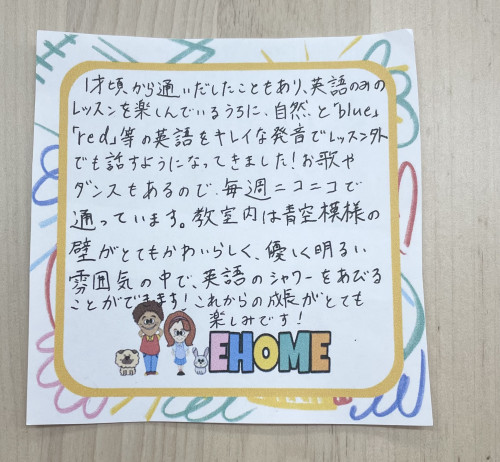 1才頃から通いだしたこともあり、英語のみの
レッスンを楽しんでいるうちに、自然と「blue」
「red」等の英語をキレイな発音でレッスン外
でも話すようになってきました！お歌や
ダンスもあるので、毎週ニコニコで
通っています。教室内は青空模様の
壁がとてもかわいらしく、優しく明るい
雰囲気の中で、英語のシャワーをあびる
ことができます！これからの成長がとても
楽しみです！
EHOME